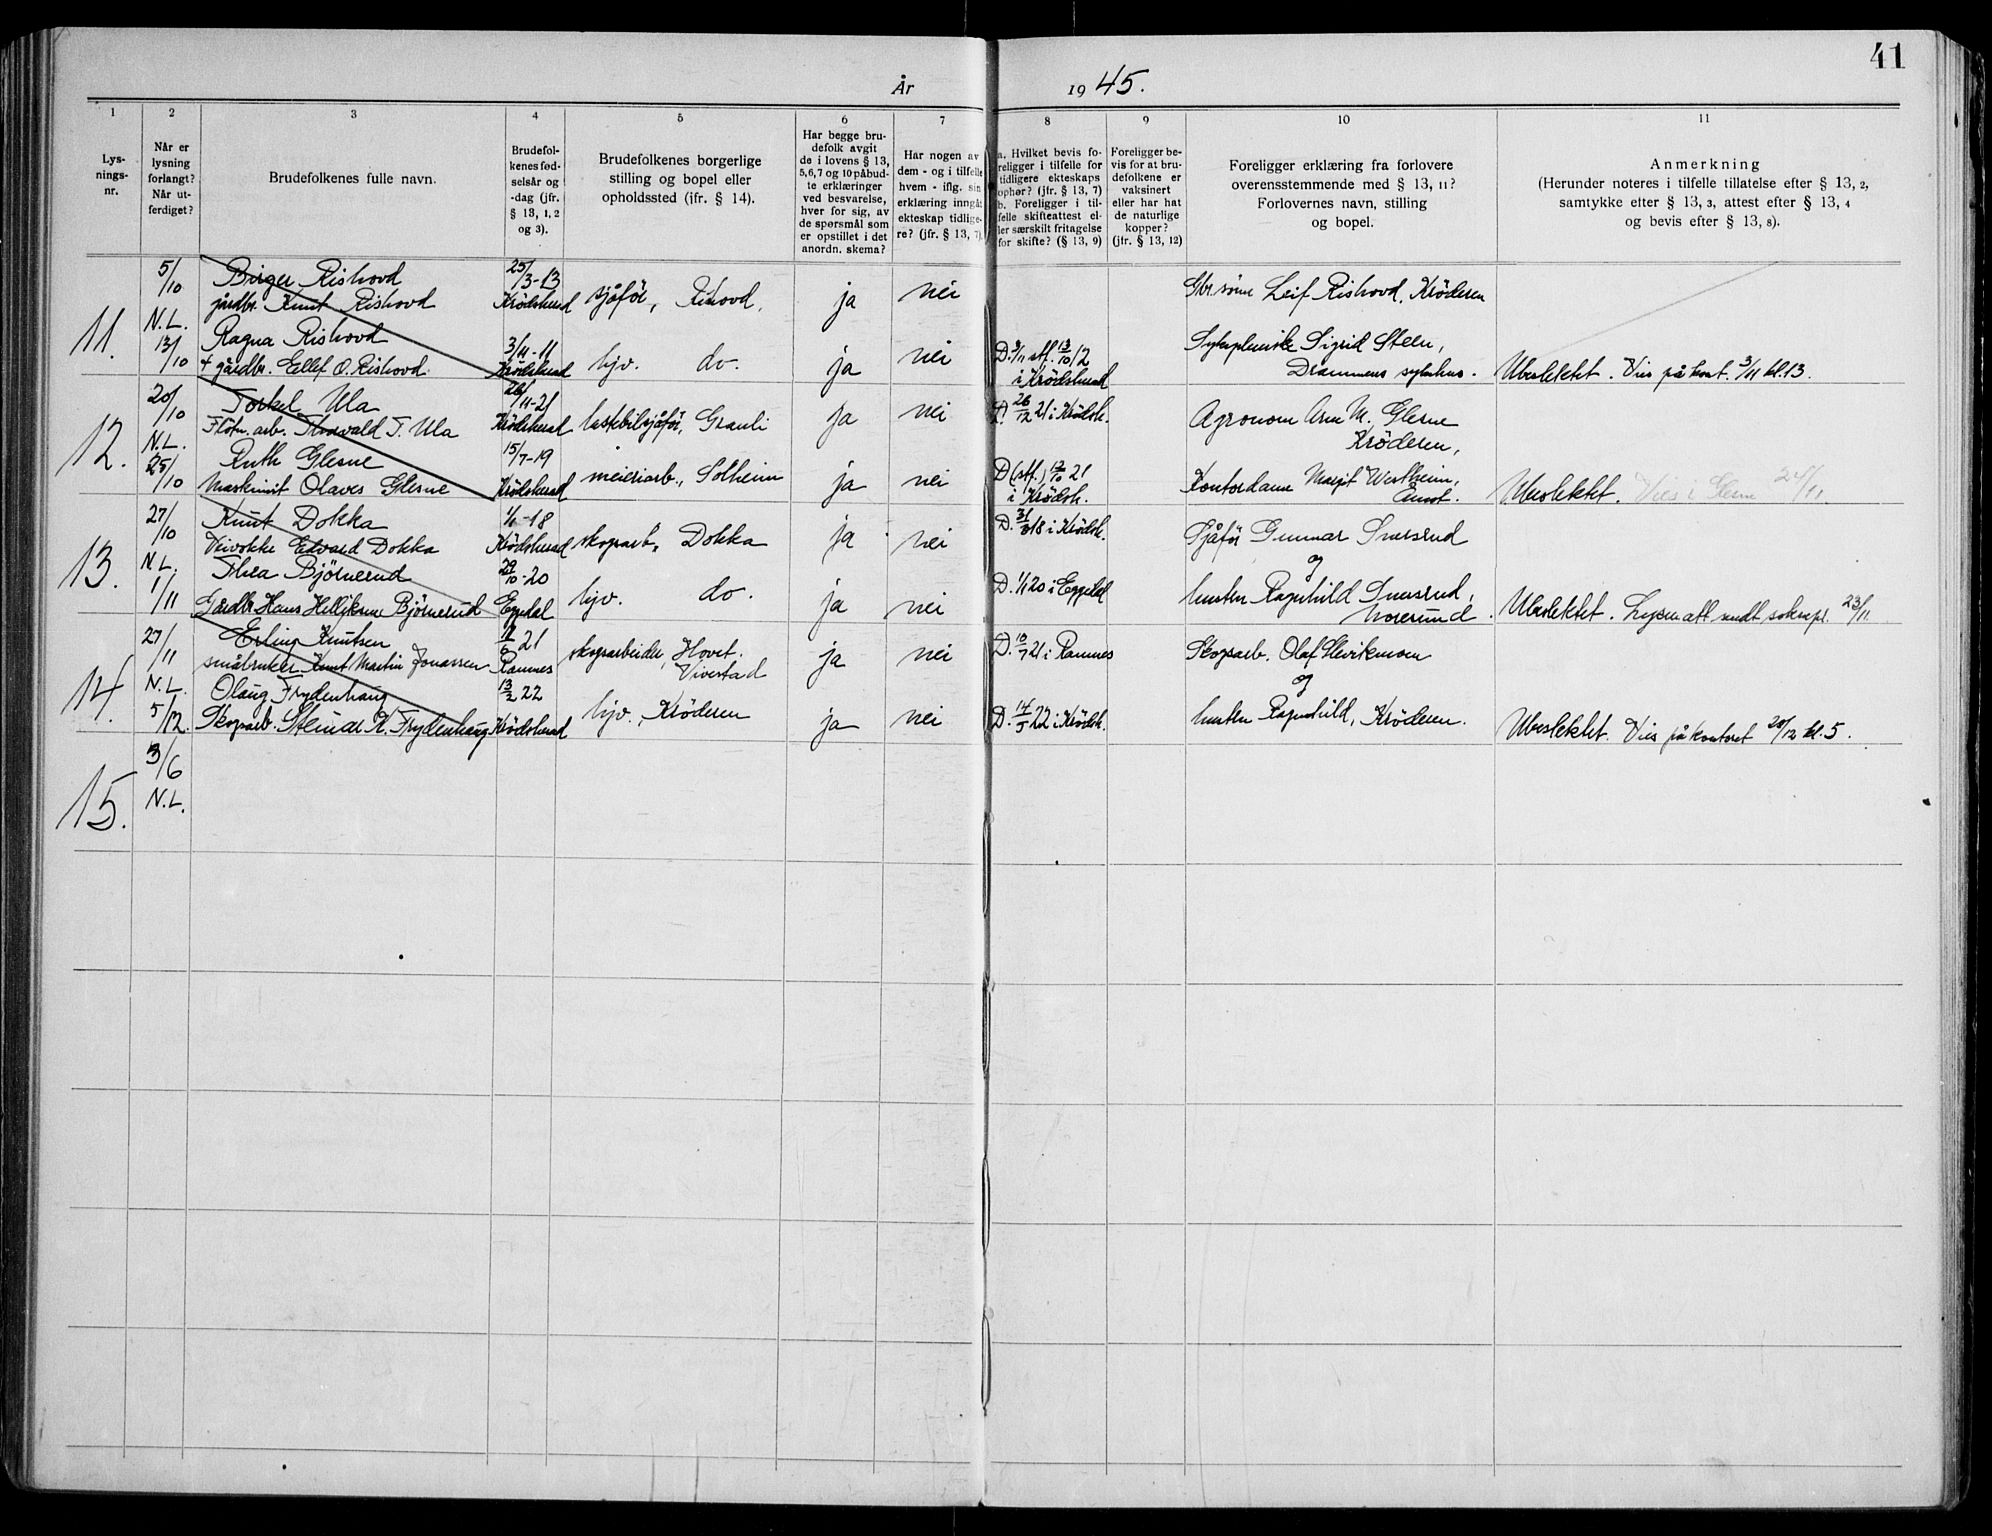 41
År 1945.
1 2 3 4 5 6 7 8 9 10 11
Lys-
nings-
nr.
Når er
lysning
forlangt?
Når ut-
ferdiget?
Brudefolkenes fulle navn.
Brudefol-
kenes fød-
selsår og
-dag (jfr.
§ 13, 1, 2
og 3).
Brudefolkenes borgerlige
stilling og bopel eller
opholdssted (jfr. § 14).
Har begge bru-
defolk avgit
de i lovens § 13,
5,6,7 og 10 påbud-
te erklæringer
ved besvarelse,
hver for sig, av
de spørsmål som
er opstillet i det
anordn. skema?
Har nogen av
dem - og i tilfelle
hvem - iflg. sin
erklæring inngåt
ekteskap tidlige-
re? (jfr. § 13, 7).
a. Hvilket bevis fo-
religger i tilfelle for
tidligere ekteskaps
ophør? (jfr. § 13, 7)
b. Foreligger i til-
felle skifteattest el-
ler særskilt fritagelse
for skifte? (§ 13, 9)
Foreligger be-
vis for at bru-
defolkene er
vaksinert
eller har hat
de naturlige
kopper?
(jfr. § 13, 12)
Foreligger erklæring fra forlovere
overensstemmende med § 13, 11?
Forlovernes navn, stilling
og bopel.
Anmerkning
(Herunder noteres i tilfelle tillatelse efter § 13, 2,
samtykke efter § 13, 3, attest efter § 13, 4
og bevis efter § 13, 8).
11.
5/10 Birger Rishovd 25/3-13
gårdbr. Knut Rishovd Krødsherad sjåfør, Rishovd, ja nei Leif Rishovd, Krøderen
N.L.
13/10 Ragna Rishovd 3/11-11 hjv. do. ja nei D. 3/11 att. 13/10 12 Sykepleierske Sigrid Steen,
gårdbr. Ellef O. Rishovd. Krødsherad i Krødsherad Drammens sykehus. Ubeslektet. Vies på kont. 3/11 kl. 13.
12.
20/10 Torkel Ula 26/11-21
Fløtn. arb. Thorvald T. Ula Krødsherad lastebilsjåfør, Grauli ja nei D. 26/12 21 i Krødsh. Agronom Arne M. Glesne
Krøderen,
N.L.
25/10 Ruth Glesne 15/7-19 meieriarb., Solheim ja nei D (att.) 12/10 21
Maskinist Olaves Glesne Krødsherad i Krødsh. Kontordame Margit Westheim,
Åmot. Ubeslektet. Vies i 24/11
13.
27/10 Knut Dokka 18
Veivokter Edvard Dokka Krødsherad skogsarb., Dokka ja nei D. 31/3 18 i Krødsh. Sjåfør Gunnar Snersrud
og
N.L.
1/11 Thea Bjørnerud 29/10-20
Gårdbr. Hans Helliksen Bjørnerud Eggedal hjv. do. ja nei D. 1/1 20 i Eggedal husten Ragnhild Snersrud,
Noresund. Ubeslektet. Lysn. att. sendt sokn.pr. 23/11.
14.
27/11 Erling Knutsen 21
småbruker Knut Martin Jonassen Ramnes skogsarbeider, Hovet.
Vivestad ja nei D. 10/7 21 i Ramnes Skogsarb. Olaf Slevikmoen
og
N.L.
5/12. Olaug Frydenhaug 13/2 22
Skogsarb. Steinar K. Frydenhaug Krødsherad hjv., Krøderen ja nei D. 14/5 22 i Krødsh. husten Ragnhild, Krøderen. Ubeslektet. Vies på kontoret 20/12 kl. 5.
15.
3/6
N.L.